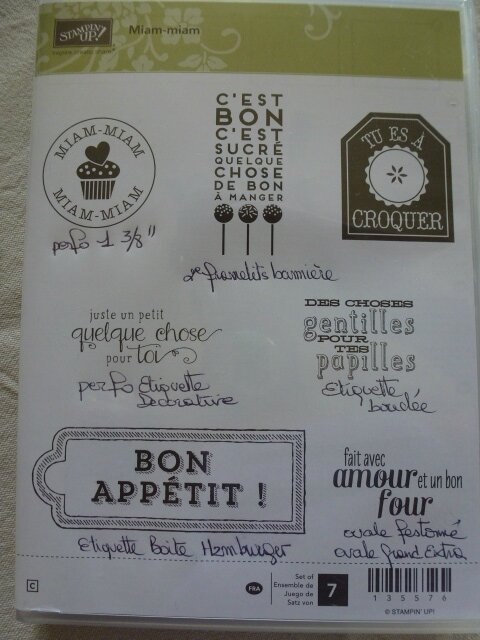 STAMPIN' UP!
Miam-miam
MIAM-MIAM
MIAM-MIAM
perfo 1 3/8"
C'EST
BON
C'EST
SUCRÉ
QUELQUE
CHOSE
DE BON
À MANGER
TU ES À
CROQUER
framelits bannière
juste un petit
quelque chose
pour toi
perfo Etiquette
Decorative
DES CHOSES
gentilles
POUR
TES
papilles
Etiquette
BON
APPÉTIT !
Etiquette Boite Hamburger
fait avec
amour et un bon
four
ovale festonné
ovale Grand Extra
C
FRA
Set of
Ensemble de
Juego de
Satz von
7
135576
© STAMPIN' UP!